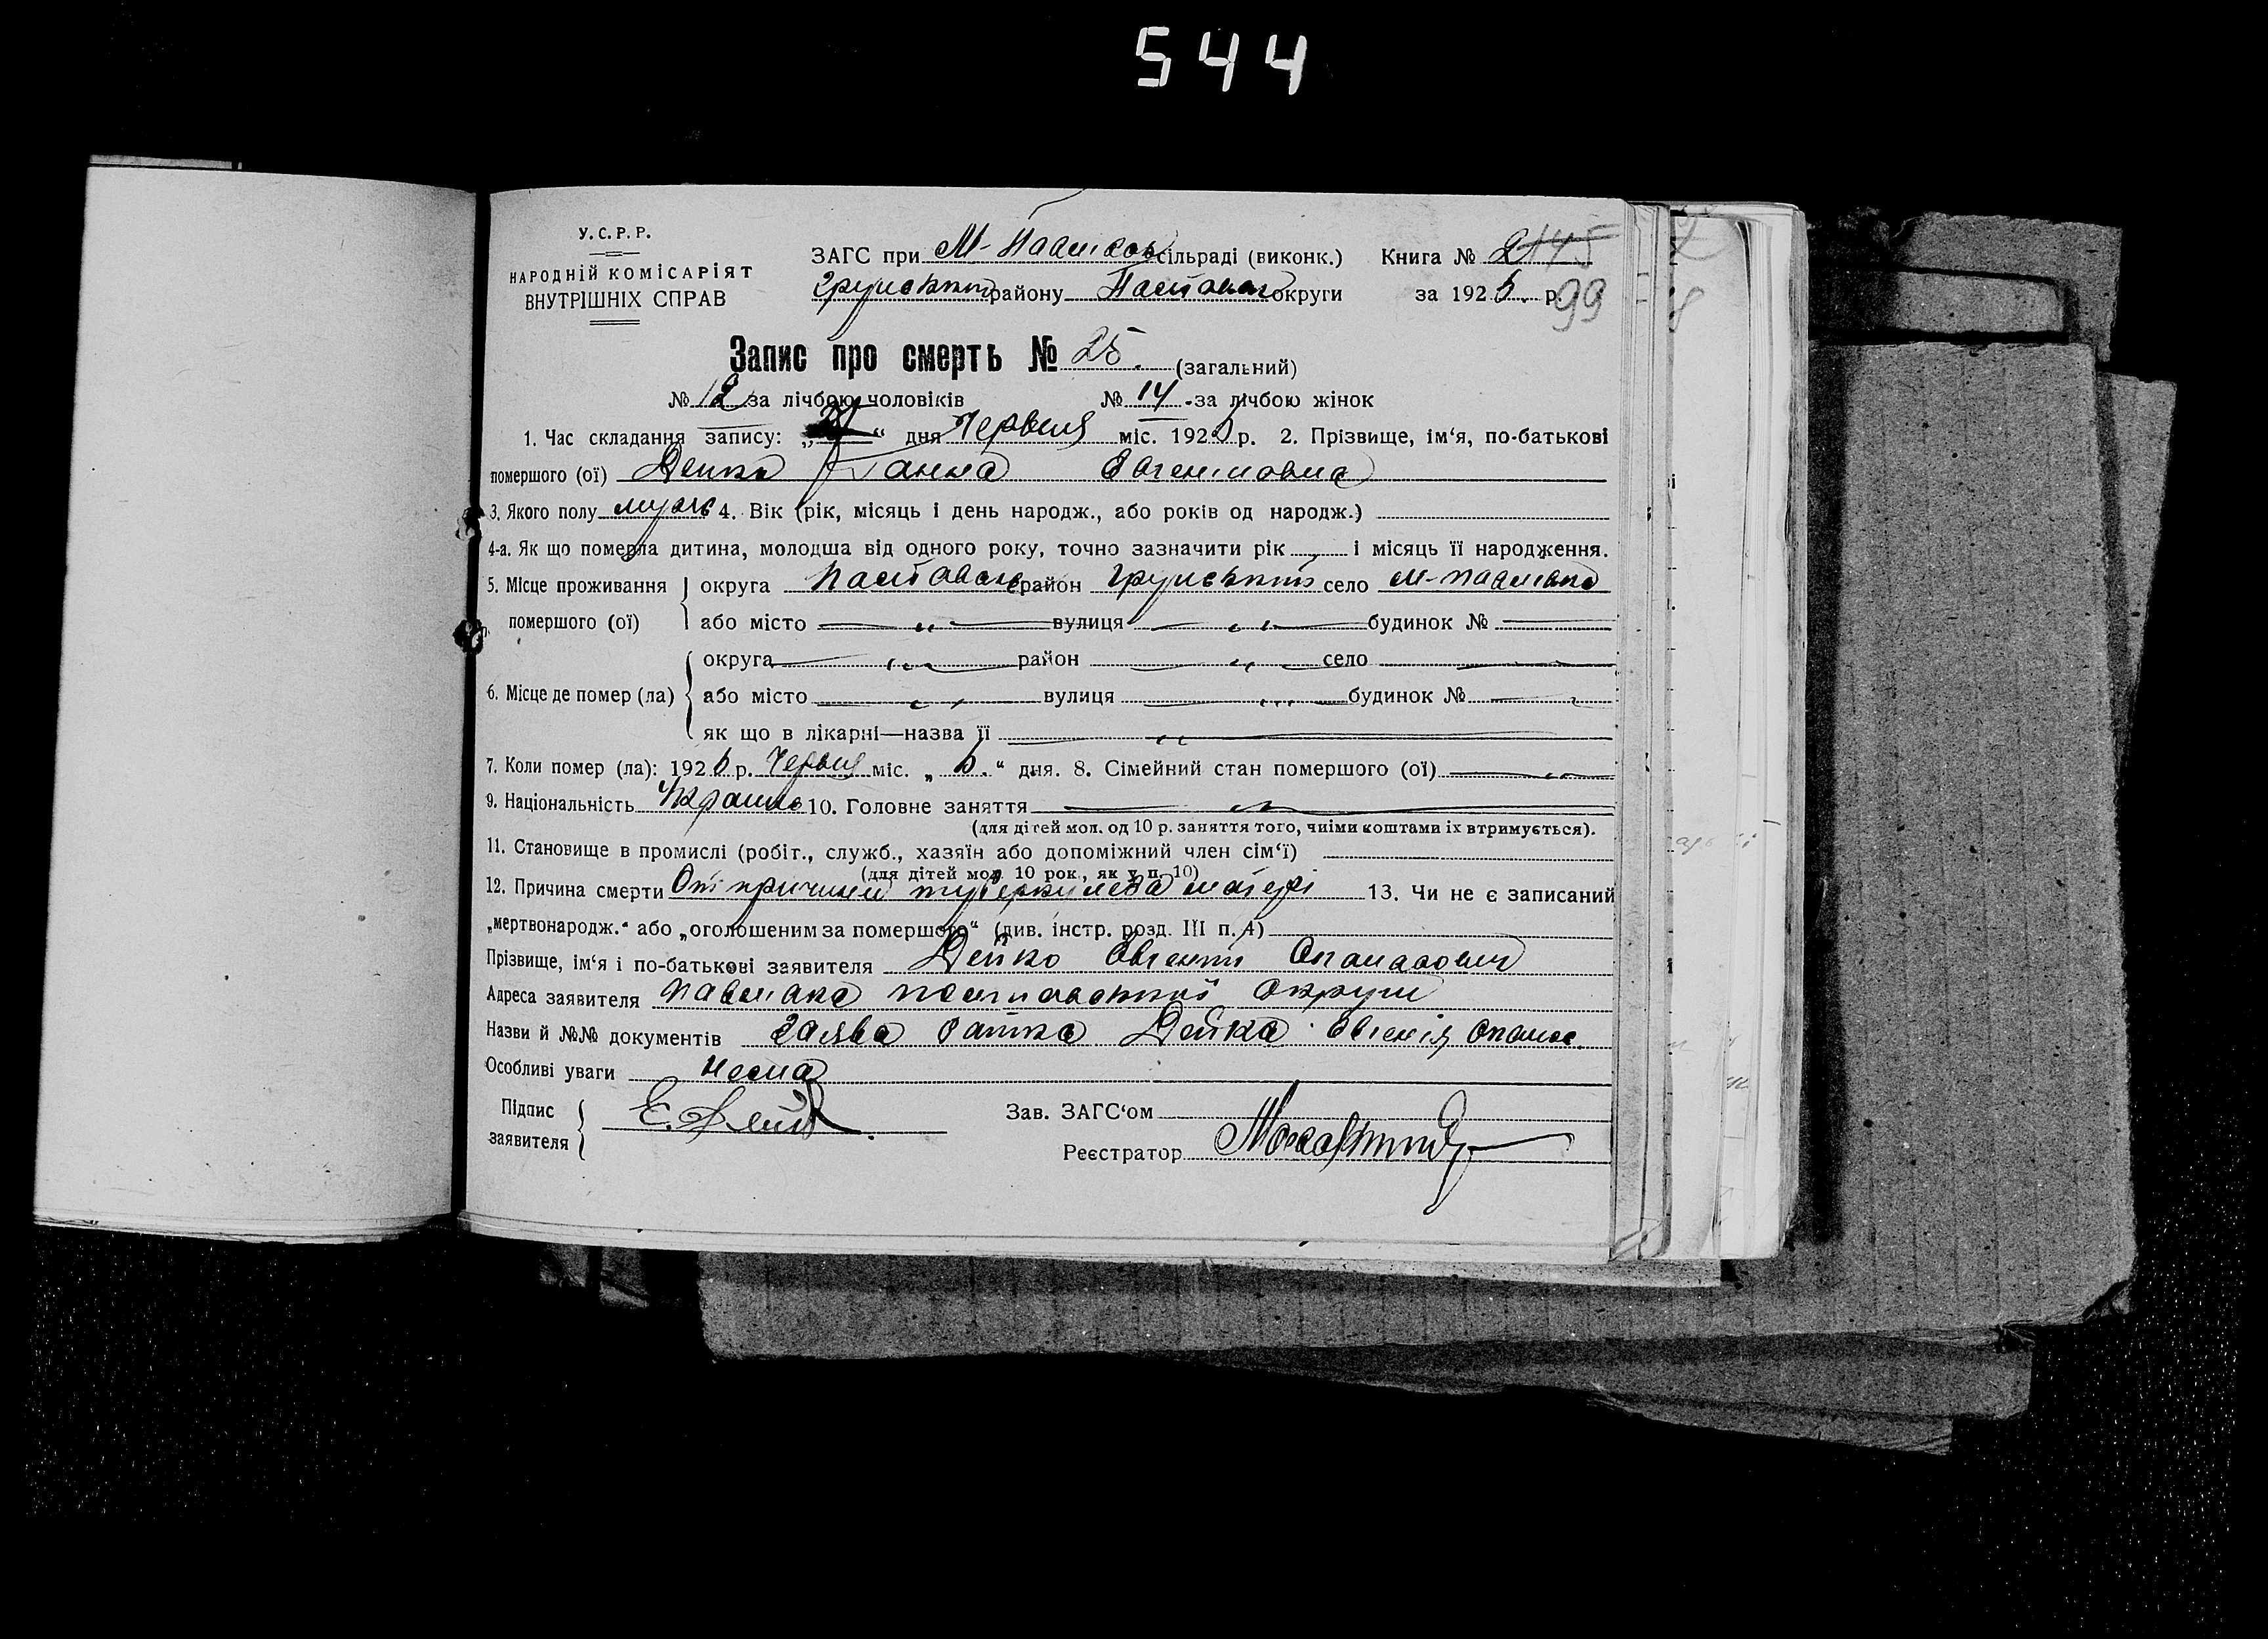 544
У.С.Р.Р.
НАРОДНІЙ КОМІСАРІЯТ
ВНУТРІШНІХ СПРАВ
ЗАГС при сільраді (виконк.) Книга № 2
району округи за 1926 р. 99
Запис про смерть № 25. (загальний)
№ 12 за лічбою чоловіків № 14 за лічбою жінок
1. Час складання запису: „ “ дня Червня міс. 1926 р. 2. Прізвище, ім‘я, по-батькові
помершого (ої) Дейко Ганна Євгенівна
3. Якого полу 4. Вік (рік, місяць і день народж., або років од народж.)
4-а. Як що померла дитина, молодша від одного року, точно зазначити рік і місяць її народження.
5. Місце проживання помершого (ої) округа район село
або місто вулиця будинок №
6. Місце де помер (ла) округа район село
або місто вулиця будинок №
як що в лікарні—назва її
7. Коли помер (ла): 1926 р. Червня міс. „6.“ дня. 8. Сімейний стан помершого (ої)
9. Національність 10. Головне заняття
(для дітей мол. од 10 р. заняття того, чиїми коштами іх втримується).
11. Становище в промислі (робіт., служб., хазяїн або допоміжний член сім‘ї)
(для дітей мол. 10 рок., як у п. 10)
12. Причина смерти От причини туберкульоза матері 13. Чи не є записаний
„мертвонародж.“ або „оголошеним за помершого“ (див. інстр. розд. III п. 4)
Прізвище, ім‘я і по-батькові заявителя Дейко Євгений Опанасович
Адреса заявителя округи
Назви й №№ документів заява батка Дейка Євгенія Опанас.
Особливі уваги нема
Підпис заявителя Е. Дейко
Зав. ЗАГС‘ом
Реєстратор